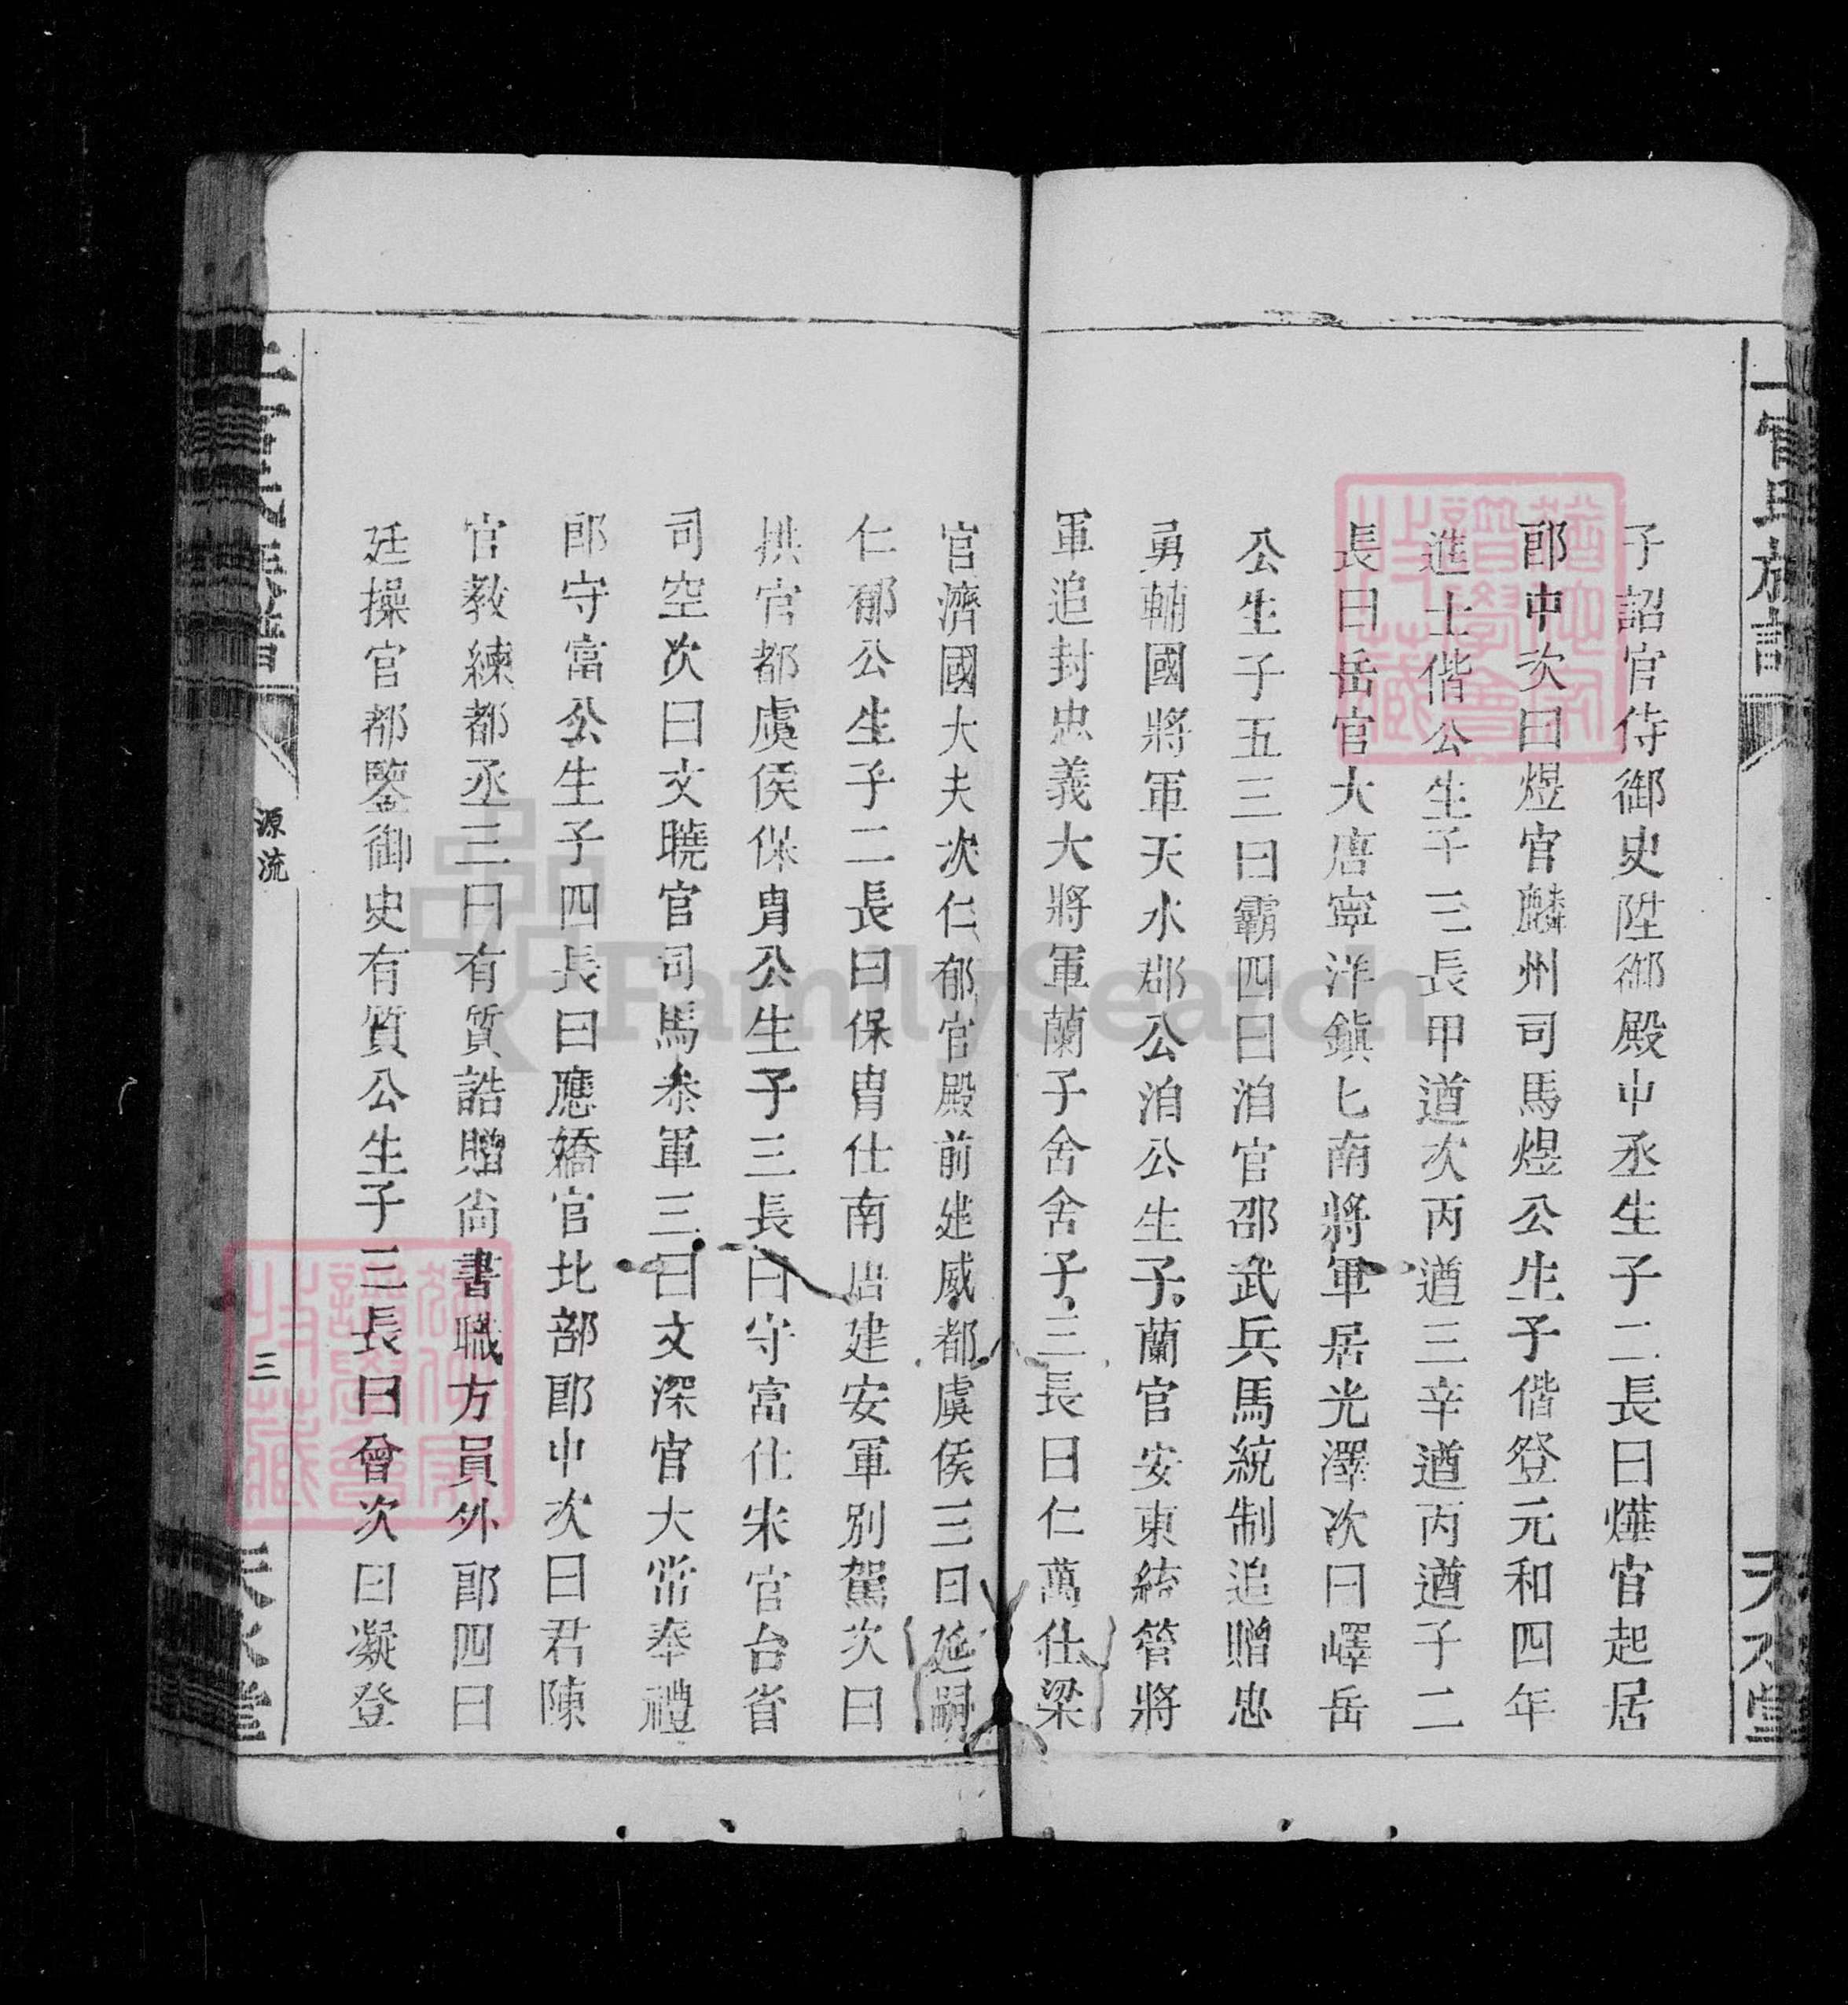 子詔官侍御史陞御殿中丞生子二長曰燁官起居
郎中次曰煜官麟州司馬煜公生子偕登元和四年
進士偕公生子三長甲遒次丙遒三辛遒丙遒子二
長曰岳官大唐寧洋鎮匕南將軍居光澤次曰嶧岳
公生子五三曰霸四曰洎官邵武兵馬統制追贈忠
勇輔國將軍天水郡公洎公生子蘭官安東統管將
軍追封忠義大將軍蘭子舍舍子三長曰仁萬仕梁
官濟國大夫次仁郁官殿前建威都虞侯三曰延嗣
仁郁公生子二長曰保胄仕南唐建安軍別駕次曰
拱官都虞侯保胄公生子三長曰守富仕宋官台省
司空次曰文曉官司馬叅軍三曰文深官大常奉禮
郎守富公生子四長曰應嬌官北部郎中次曰君陳
官教練都丞三曰有質誥贈尚書職方員外郎四曰
廷操官都鑒御史有質公生子三長曰曾次曰凝登
官氏族譜
源流
三
天水堂
FamilySearch